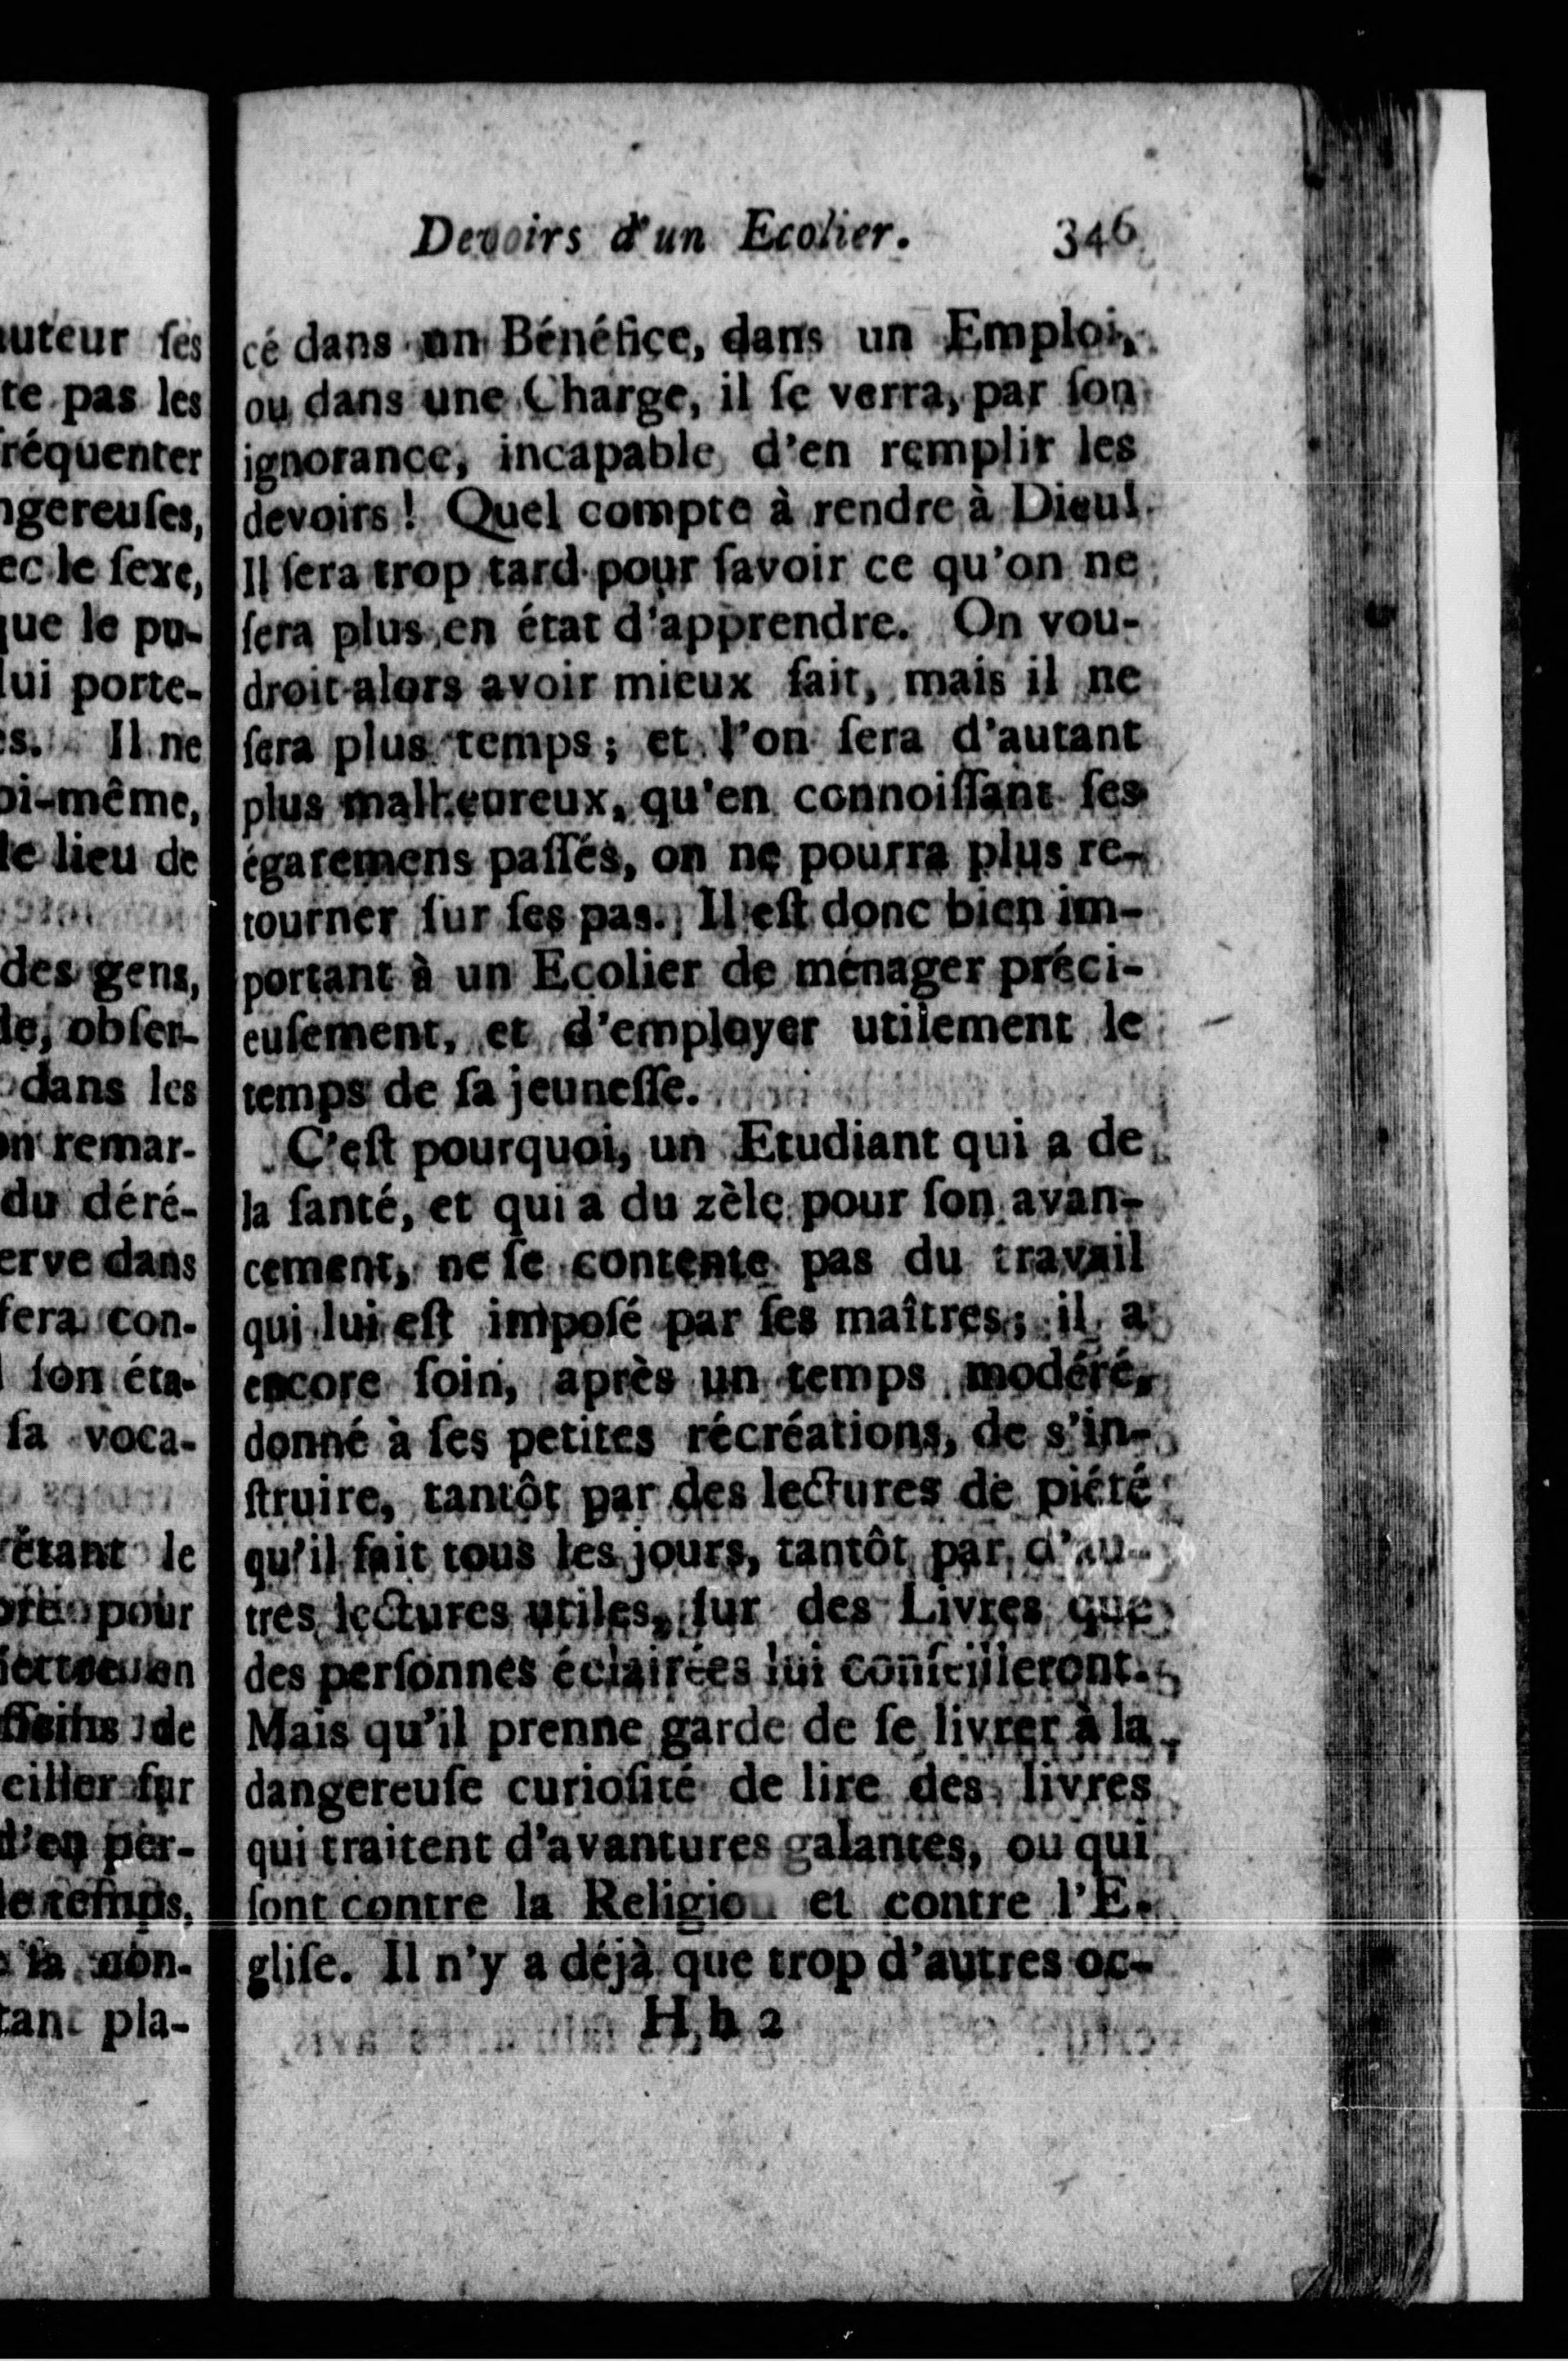 Devoirs d'un Ecolier. 346
cé dans un Bénéfice, dans un Emploi,
ou dans une Charge, il ſe verra, par ſon
ignorance, incapable d'en remplir les
devoirs! Quel compte à rendre à Dieu!
Il ſera trop tard pour ſavoir ce qu'on ne
ſera plus en état d'apprendre. On vou-
droit alors avoir mieux fait, mais il ne
ſera plus temps; et l'on ſera d'autant
plus malheureux, qu'en connoiſſant ſes
égaremens paſſés, on ne pourra plus re-
tourner ſur ſes pas. Il eſt donc bien im-
portant à un Ecolier de ménager préci-
euſement, et d'employer utilement le
temps de ſa jeuneſſe.
C'eſt pourquoi, un Etudiant qui a de
la ſanté, et qui a du zèle pour ſon avan-
cement, ne ſe contente pas du travail
qui lui eſt impoſé par ſes maîtres; il a
encore ſoin, après un temps modéré,
donné à ſes petites récréations, de s'in-
ſtruire, tantôt par des lectures de piété
qu'il fait tous les jours, tantôt par d'au-
tres lectures utiles, ſur des Livres que
des perſonnes éclairées lui conſeilleront.
Mais qu'il prenne garde de ſe livrer à la
dangereuſe curioſité de lire des livres
qui traitent d'avantures galantes, ou qui
ſont contre la Religion et contre l'E-
gliſe. Il n'y a déjà que trop d'autres oc-
H h 2
uteur ſes
te pas les
réquenter
ngereuſes,
ec le ſexe,
que le pu-
lui porte-
s. Il ne
oi-même,
le lieu de
des gens,
obſer-
dans les
on remar-
du déré-
erve dans
ſera con-
ſon éta-
ſa voca-
étant le
pour
de
eiller ſur
d'en per-
le temps,
ſa con-
tant pla-